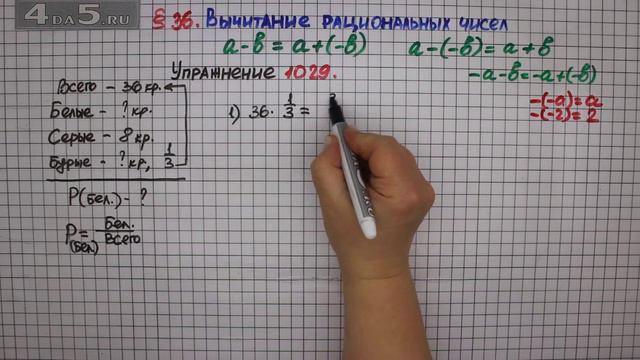 4DA5.RU
§ 36. Вычитание рациональных чисел
a-b = a+(-b) a-(-b) = a+b
Упражнение 1029.
-a-b=-a+(-b)
-(-a)=a
-(-2)=2
Всего - 36 кр.
Белые - ? кр.
Серые - 8 кр.
Бурые - ? кр, 1/3
P(бел.) - ?
P(бел) = Бел./Всего
1) 36 · 1/3 =